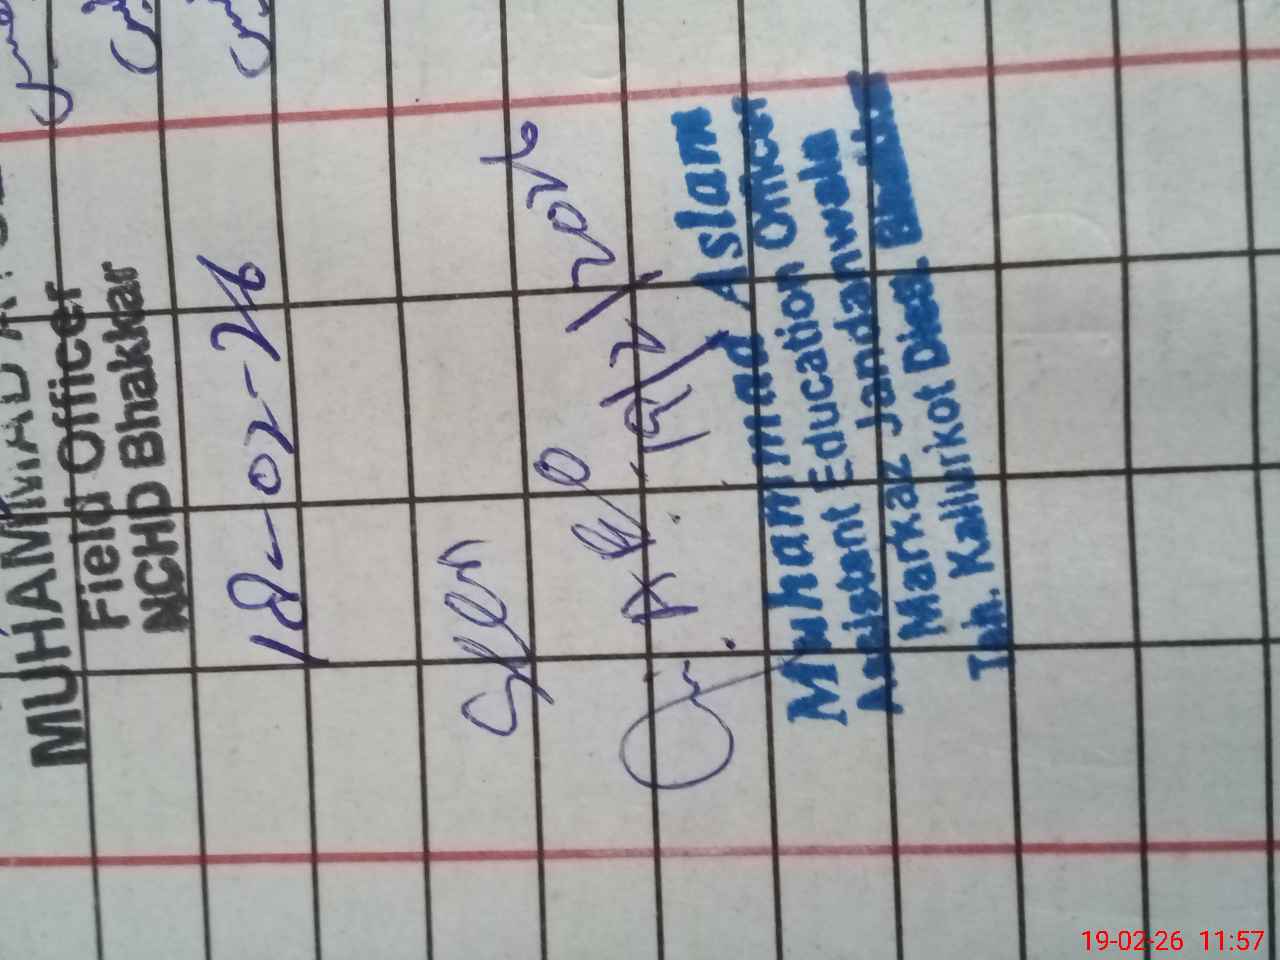 Field Officer
NCHD Bhakkar
18-02-26
Seen
19/2/2026
Muhammad Aslam
Assistant Education Officer
Markaz Jandanwala
Teh. Kallurkot Distt. Bhakkar
19-02-26 11:57